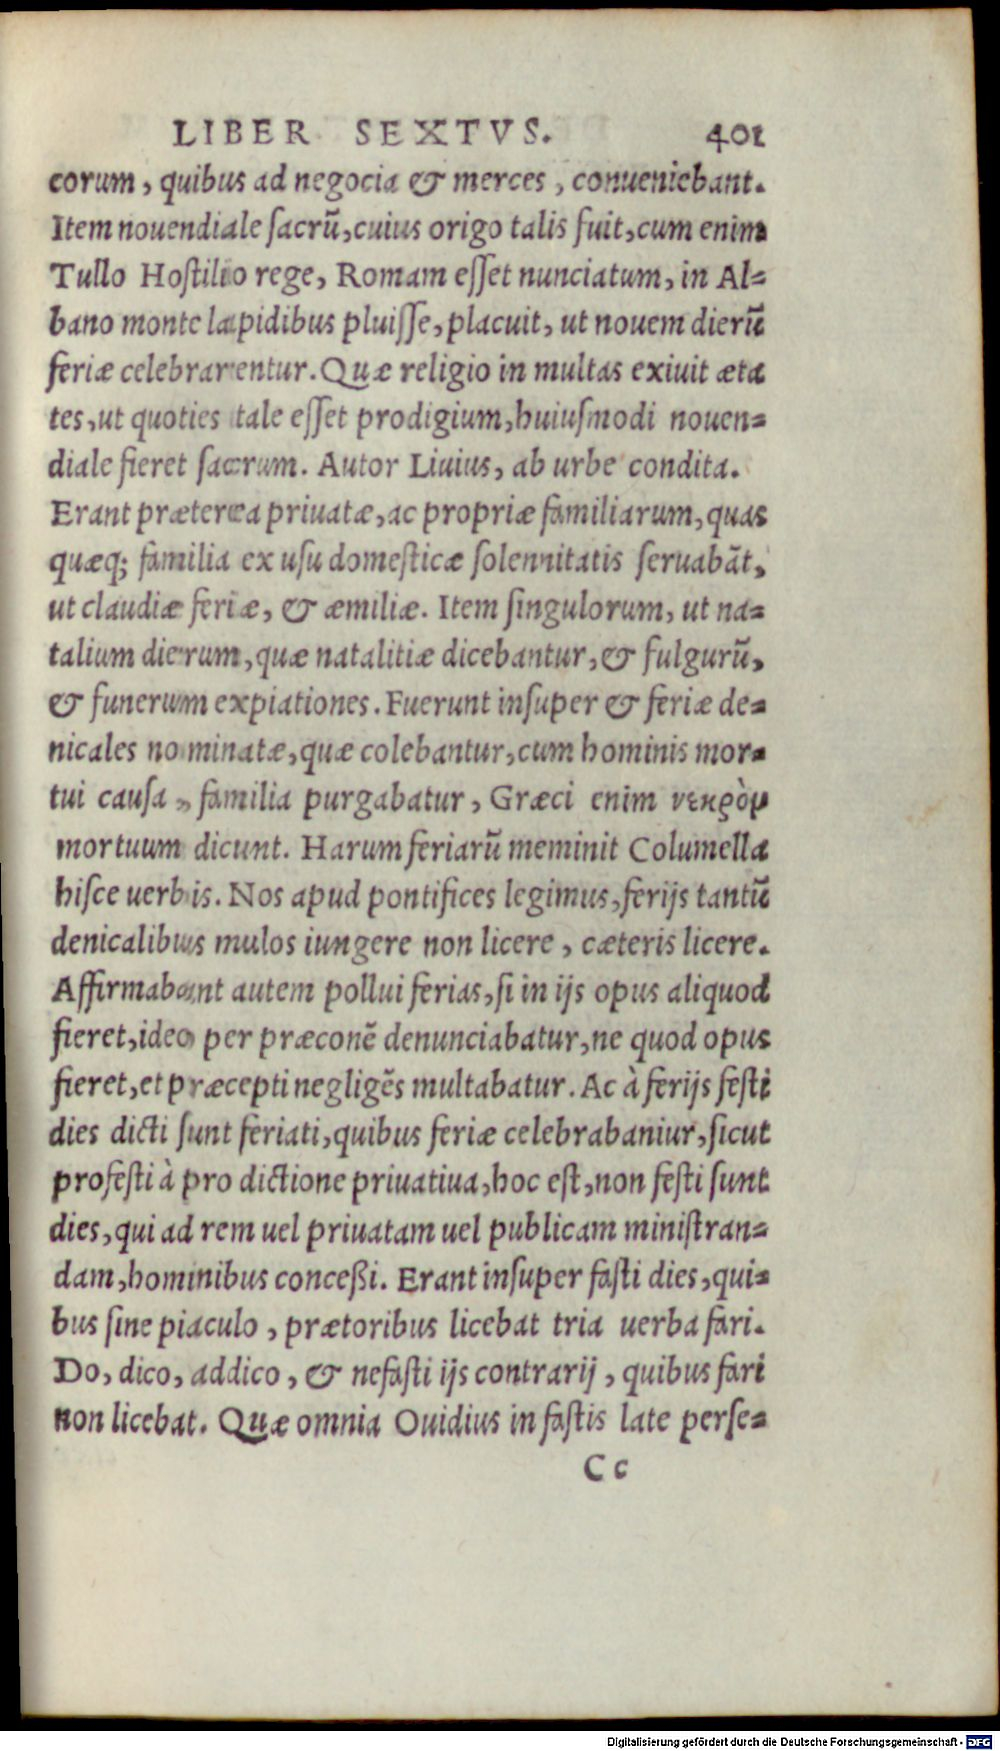 LIBER SEXTVS. 401
eorum, quibus ad negocia & merces, conueniebant.
Item nouendiale ſacrũ, cuius origo talis fuit, cum enim
Tullo Hoſtilio rege, Romam eſſet nunciatum, in Al-
bano monte lapidibus pluiſſe, placuit, ut nouem dierũ
feriæ celebrarentur. Quæ religio in multas exiuit æta
tes, ut quoties tale eſſet prodigium, huiuſmodi nouen-
diale fieret ſacrum. Autor Liuius, ab urbe condita.
Erant præterea priuatæ, ac propriæ familiarum, quas
quæq; familia ex uſu domeſticæ ſolennitatis ſeruabãt,
ut claudiæ feriæ, & æmiliæ. Item ſingulorum, ut na-
talium dierum, quæ natalitiæ dicebantur, & fulgurũ,
& funerum expiationes. Fuerunt inſuper & feriæ de-
nicales nominatæ, quæ colebantur, cum hominis mor-
tui cauſa, familia purgabatur, Græci enim νεκρὸν
mortuum dicunt. Harum feriarũ meminit Columella
hiſce uerbis. Nos apud pontifices legimus, ferijs tantũ
denicalibus mulos iungere non licere, cæteris licere.
Affirmabant autem pollui ferias, ſi in ijs opus aliquod
fieret, ideo per præconẽ denunciabatur, ne quod opus
fieret, et præcepti negligẽs multabatur. Ac à ferijs feſti
dies dicti ſunt feriati, quibus feriæ celebrabaniur, ſicut
profeſti à pro dictione priuatiua, hoc eſt, non feſti ſunt
dies, qui ad rem uel priuatam uel publicam miniſtran-
dam, hominibus conceßi. Erant inſuper faſti dies, qui-
bus ſine piaculo, prætoribus licebat tria uerba fari.
Do, dico, addico, & nefaſti ijs contrarij, quibus fari
non licebat. Quæ omnia Ouidius in faſtis late perſe-
Cc
Digitalisierung gefördert durch die Deutsche Forschungsgemeinschaft - DFG